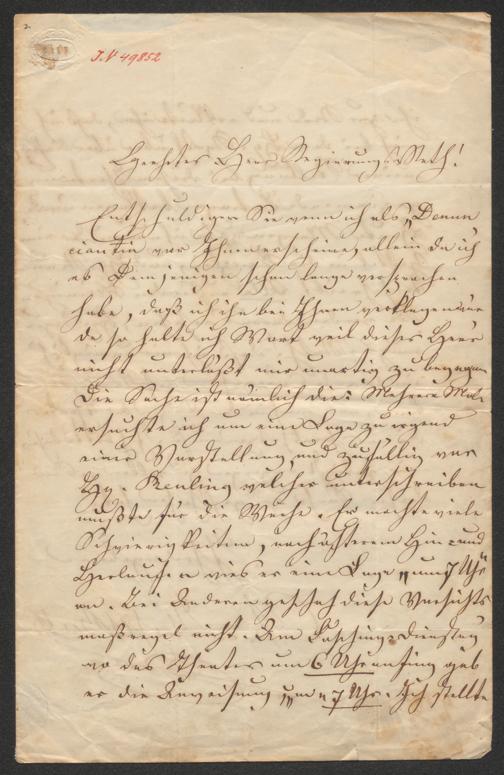 2.
J.N 49852
Geehrter Herr Regierungs-Rath!
Entschuldigen Sie wenn ich als „Denun
ciantin vor Ihnen erscheine, allein da ich
es demjenigen schon lange versprochen
habe, daß ich ihn bei Ihnen verklagen wür
de so halte ich Wort weil dieser Herr
nicht unterläßt mir unartig zu begegnen
Die Sache ist nämlich die: Mehrere Mal
ersuchte ich um eine Loge zu irgend
einer Vorstellung, und zufällig war
Hr. Reuling welcher unterschreiben
mußte für die Woche. Er machte viele
Schwierigkeiten, nach öfterem Hin- und
Herlaufen wies er eine Loge „um 7 Uhr
an. Bei Anderen geschah diese Vorsichts
maßregel nicht. Am Faschings-Dienstag
wo das Theater um 6 Uhr anfing gab
er die Anweisung „um 7 Uhr. Ich stellte